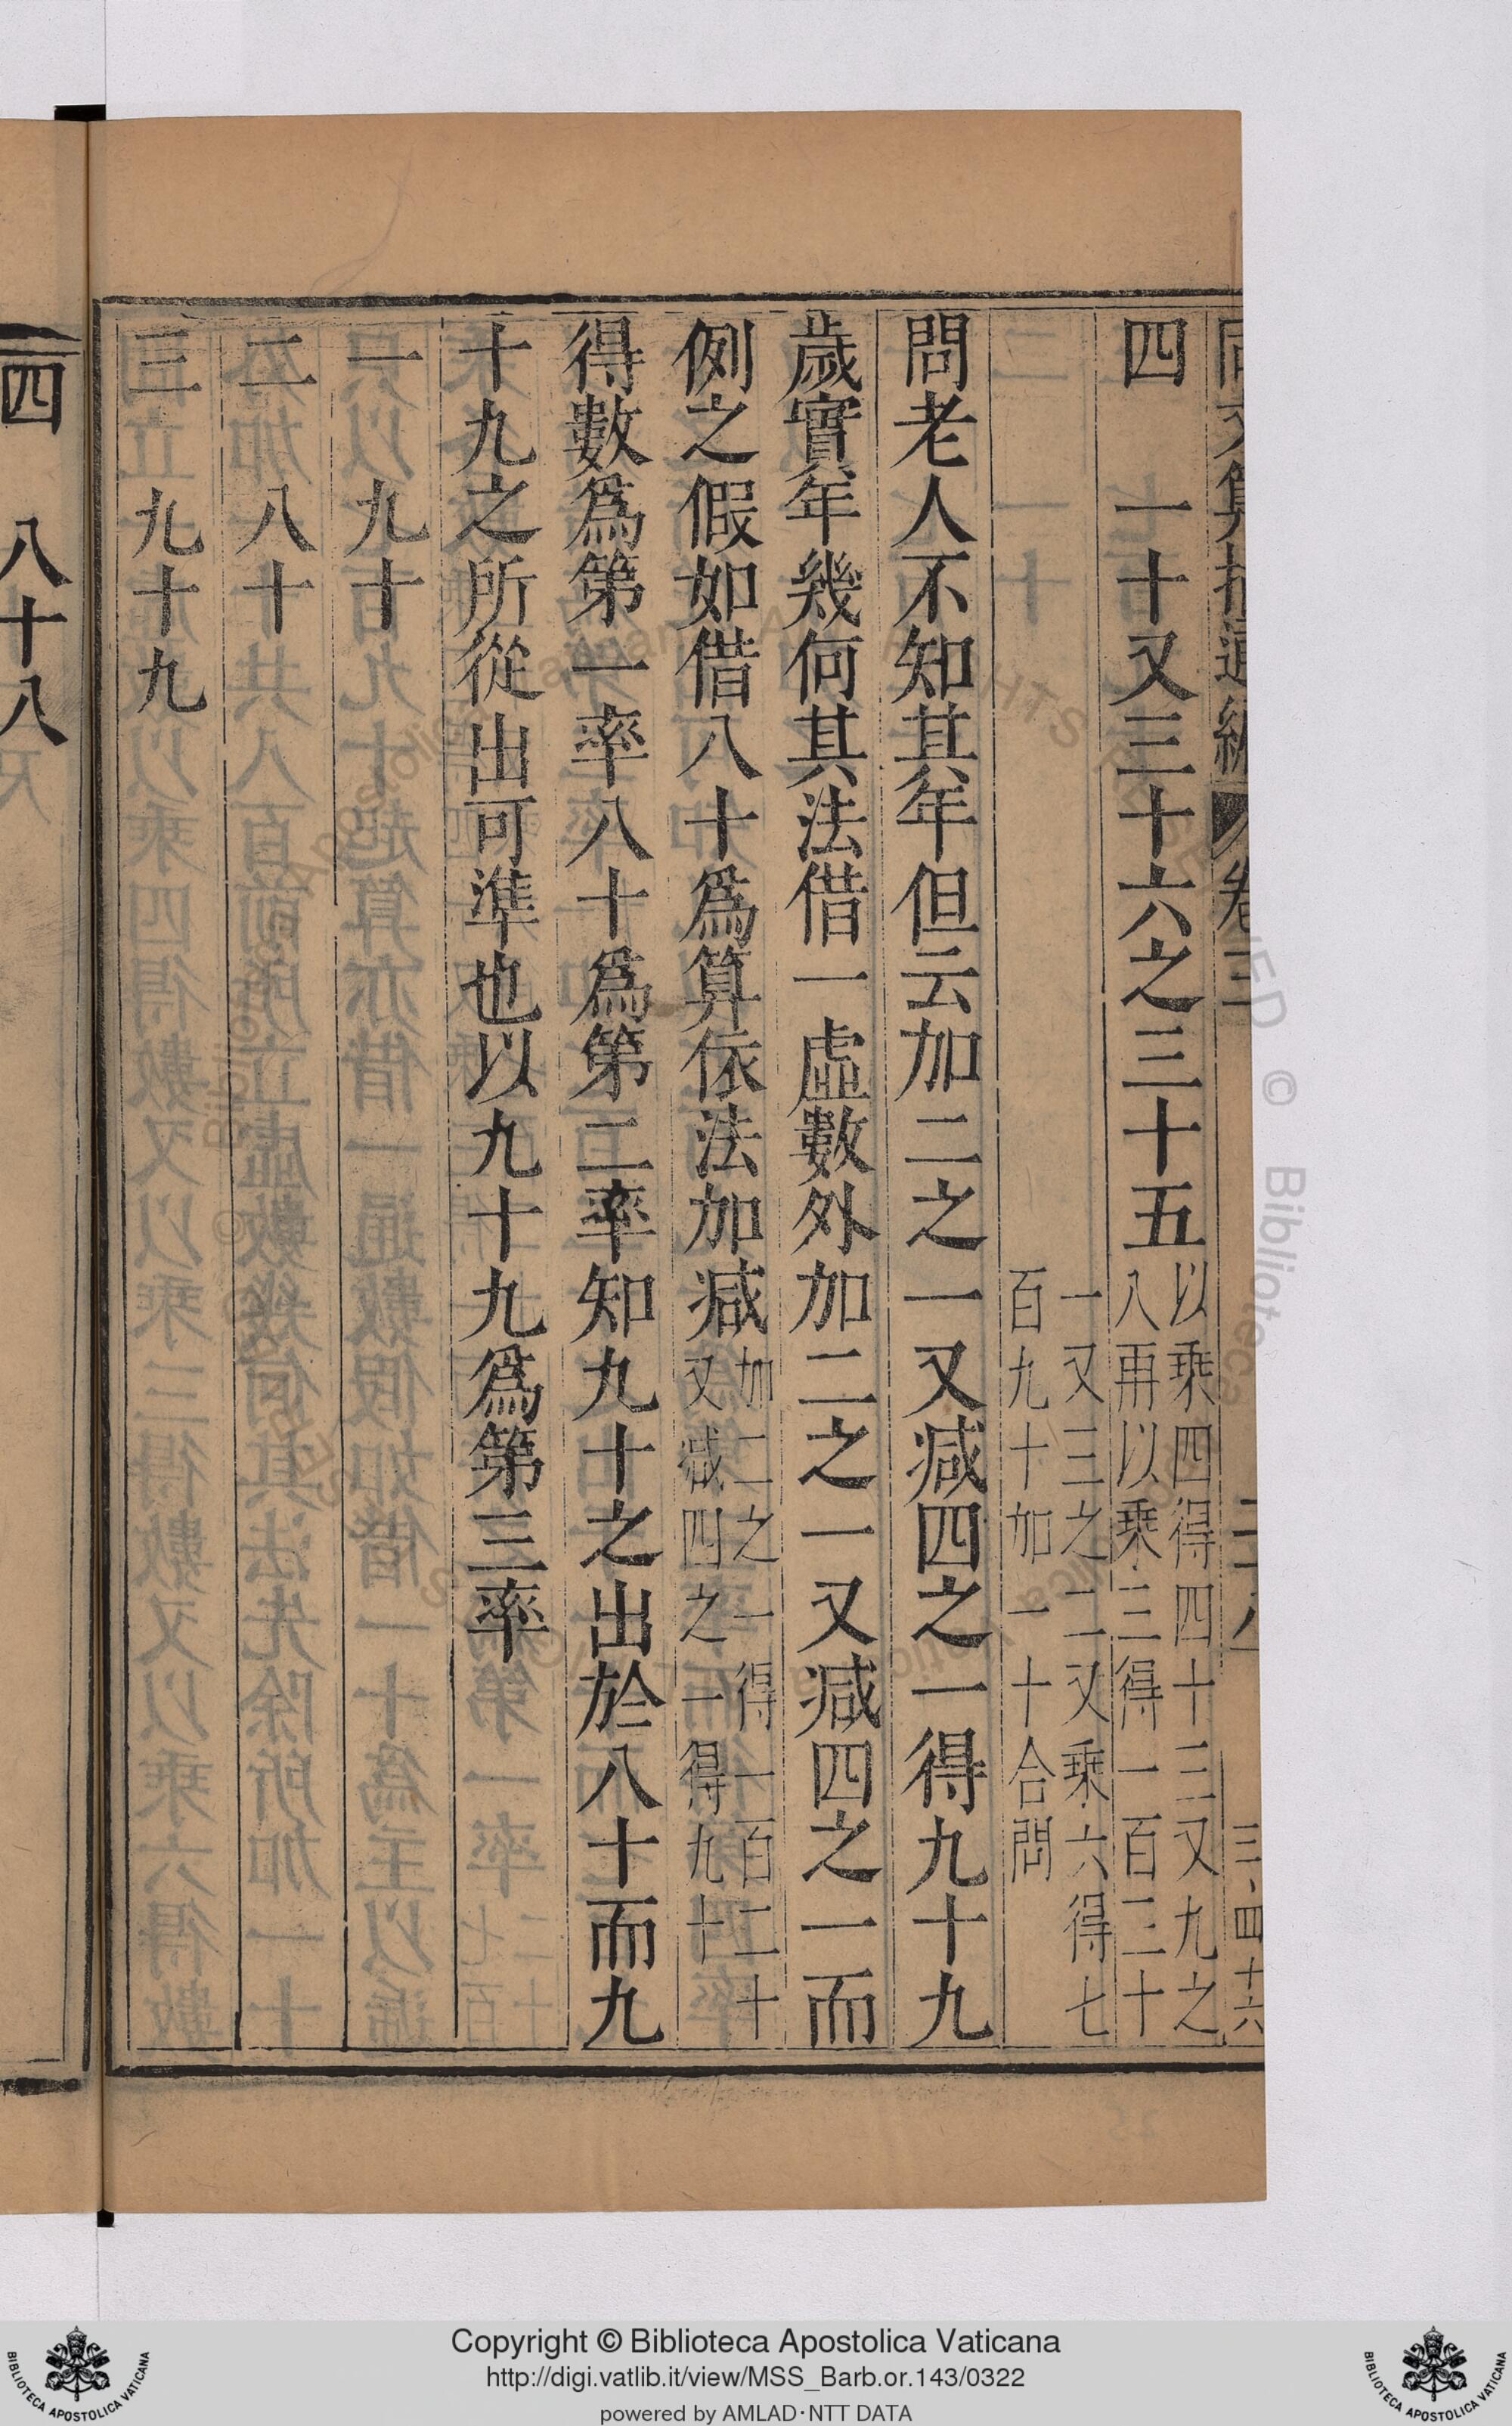 同文算指通編 卷三
四 一十又三十六之三十五 以乘四得四十三又九之
八再以乘三得一百三十
一又三之二又乘六得七
百九十加一十合問
問老人不知其年但云加二之一又減四之一得九十九
歲實年幾何其法借一虛數外加二之一又減四之一而
例之假如借八十爲算依法加減 加二之一得一百二十
又減四之一得九十
得數爲第一率八十爲第二率知九十之出於八十而九
十九之所從出可準也以九十九爲第三率
一 九十
二 八十
三 九十九
四 八十八
Copyright © Biblioteca Apostolica Vaticana
http://digi.vatlib.it/view/MSS_Barb.or.143/0322
powered by AMLAD·NTT DATA
BIBLIOTECA APOSTOLICA VATICANA
BIBLIOTECA APOSTOLICA VATICANA